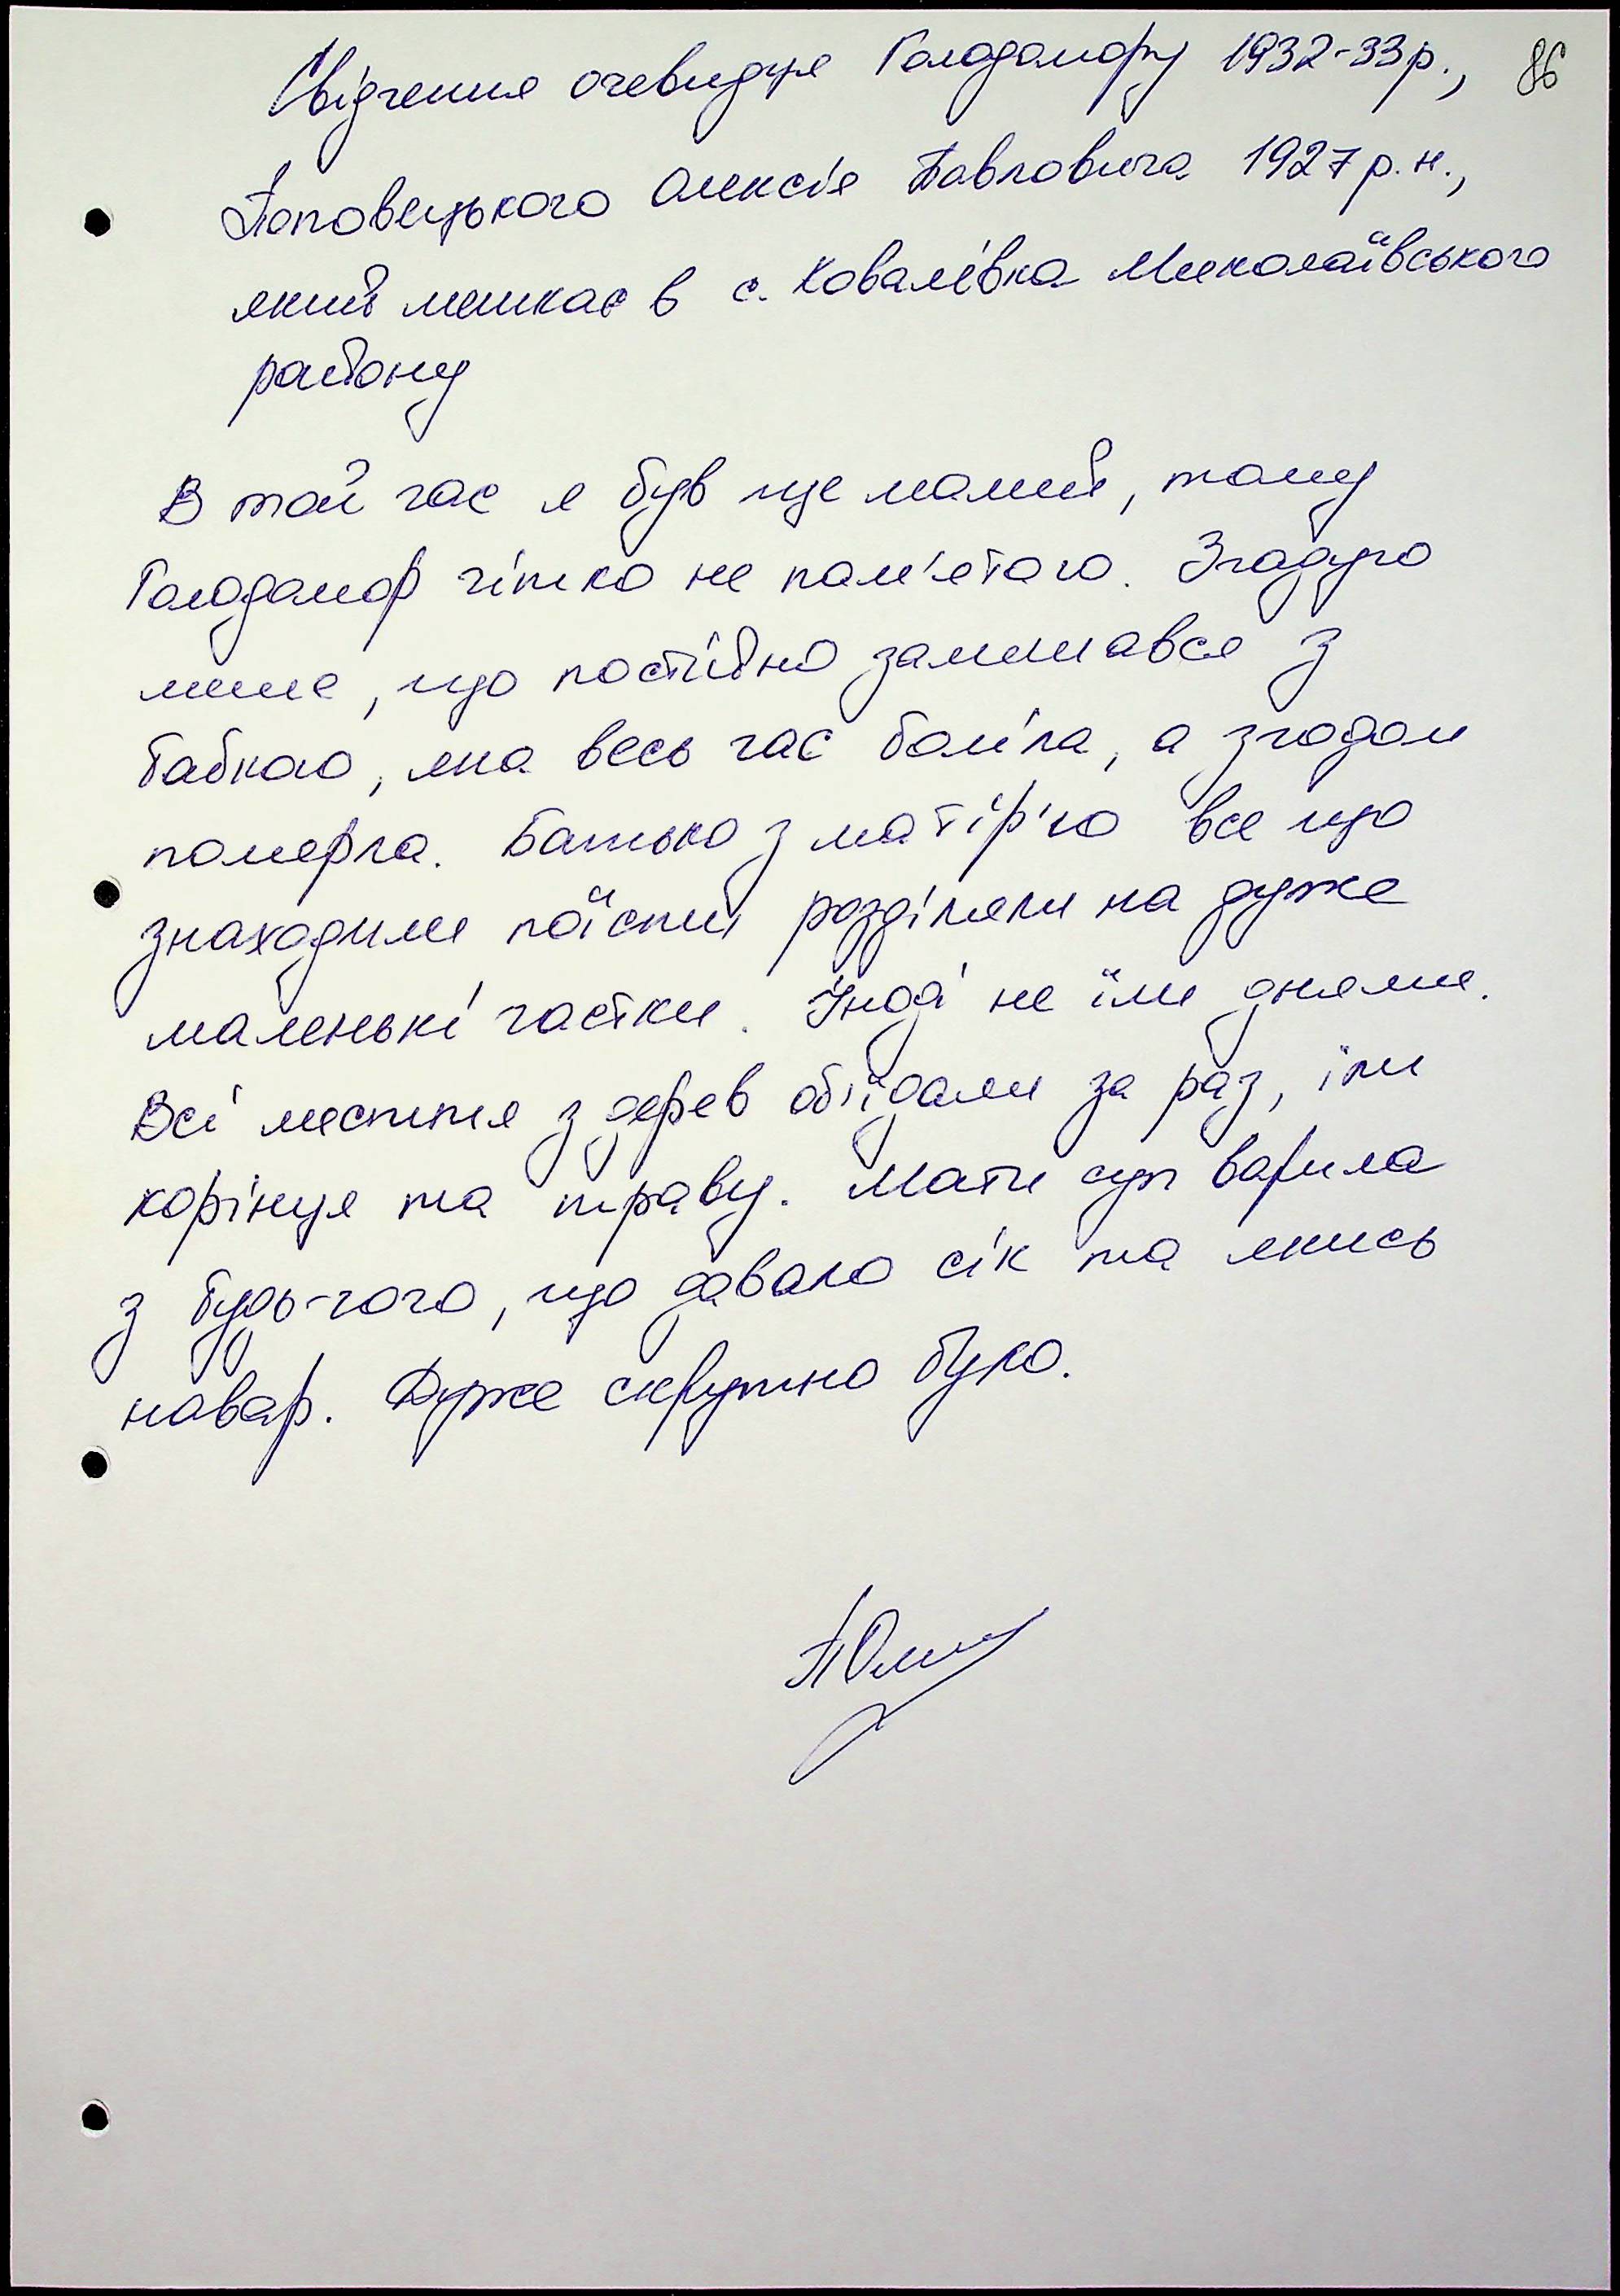 Свідчення очевидця Голодомору 1932-33р., 86
Поповецького Олексія Павловича 1927 р.н.,
який мешкає в с. Ковалівка Миколаївського
району
В той час я був ще малий, тому
Голодомор чітко не пам'ятаю. Згадую
лише, що постійно залишався з
бабкою, яка весь час боліла, а згодом
померла. Батько з матір'ю все що
знаходили поїсти розділяли на дуже
маленькі частки. Іноді не їли днями.
Всі листття з дерев об'їдали за раз, їли
корінця та траву. Мати суп варила
з будь-чого, що давало сік та якись
навар. Дуже скрутно було.